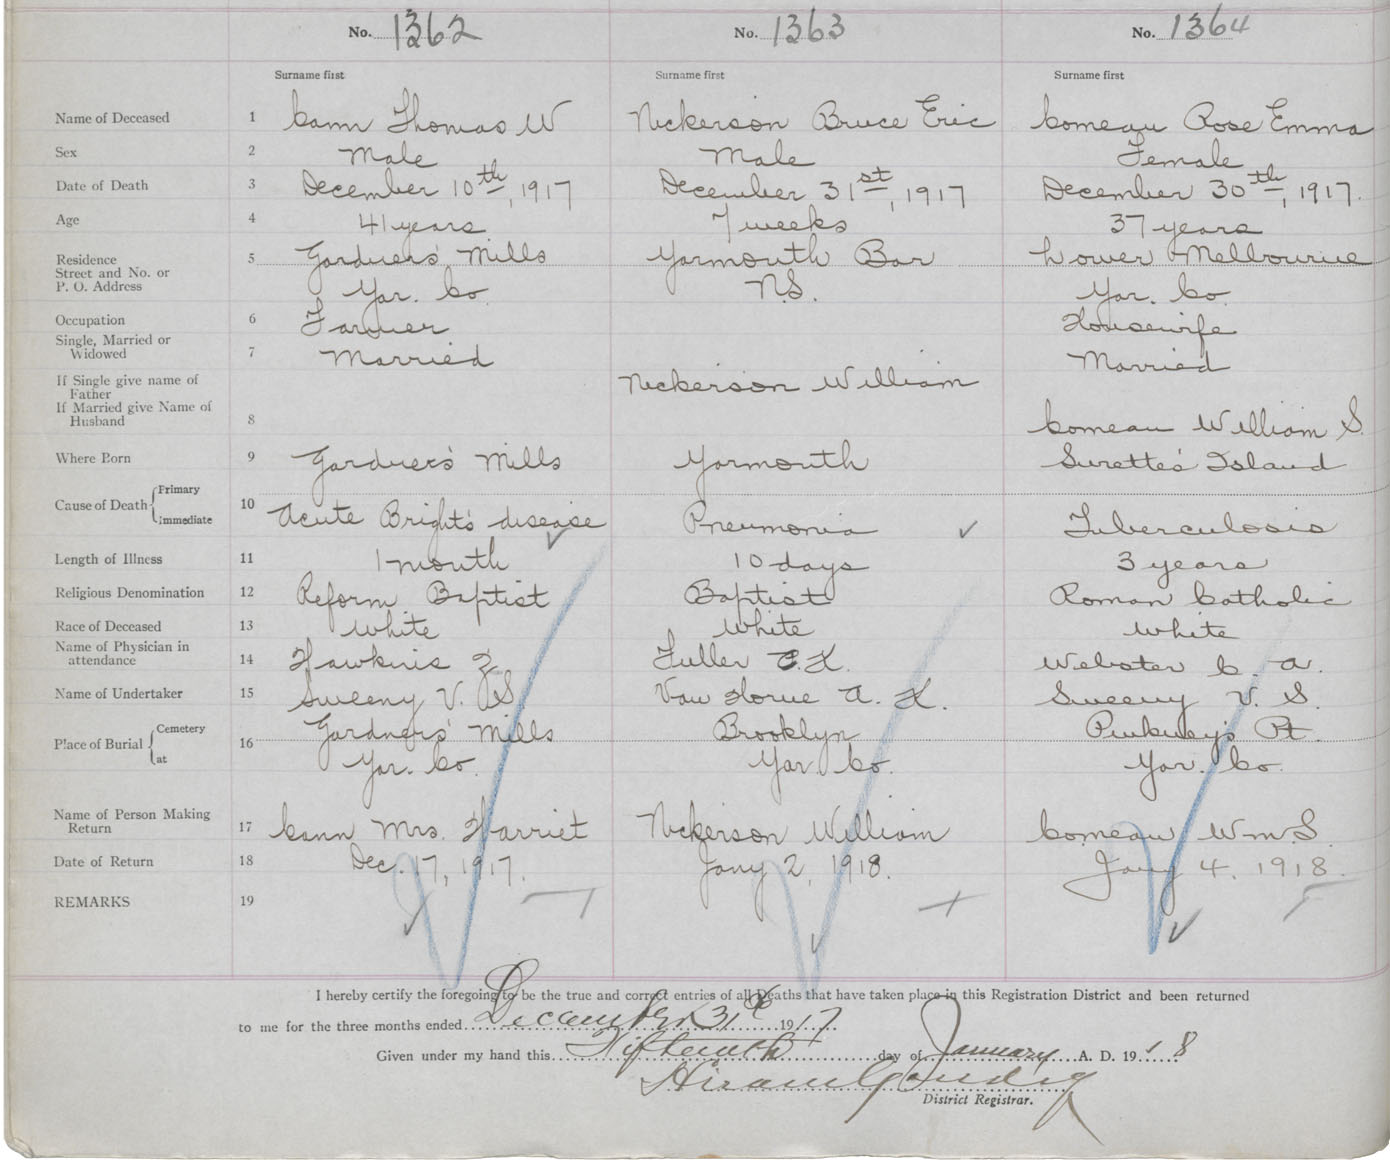 No. 1362 No. 1363 No. 1364
Surname first Surname first Surname first
Name of Deceased 1 Cann Thomas W Nickerson Bruce Eric Comeau Rose Emma
Sex 2 Male Male Female
Date of Death 3 December 10th, 1917 December 31st, 1917 December 30th, 1917.
Age 4 41 years 7 weeks 37 years
Residence 5 Gardner's Mills Yarmouth Bar Lower Melbourne
Street and No. or
P. O. Address Yar. Co. N.S. Yar. Co.
Occupation 6 Farmer Housewife
Single, Married or
Widowed 7 Married Married
If Single give name of
Father Nickerson William
If Married give Name of
Husband 8 Comeau William S.
Where Born 9 Gardner's Mills Yarmouth Surette's Island
Cause of Death Primary
Immediate 10 Acute Bright's disease Pneumonia Tuberculosis
Length of Illness 11 1 month 10 days 3 years
Religious Denomination 12 Reform Baptist Baptist Roman Catholic
Race of Deceased 13 White White White
Name of Physician in
attendance 14 Hawkins Z Fuller Webster C. A.
Name of Undertaker 15 Sweeny V. S Van Horne A. K. Sweeny V. S.
Place of Burial Cemetery 16 Gardners' Mills Brooklyn Pinkney's Pt.
at Yar. Co. Yar. Co. Yar. Co.
Name of Person Making
Return 17 Cann Mrs. Harriet Nickerson William Comeau Wm S.
Date of Return 18 Dec. 17, 1917. Jany 2, 1918. Jany 4, 1918.
REMARKS 19
I hereby certify the foregoing to be the true and correct entries of all Deaths that have taken place in this Registration District and been returned
to me for the three months ended December 31st 1917
Given under my hand this Fifteenth day of January A. D. 1918
Hiram Goudey
District Registrar.